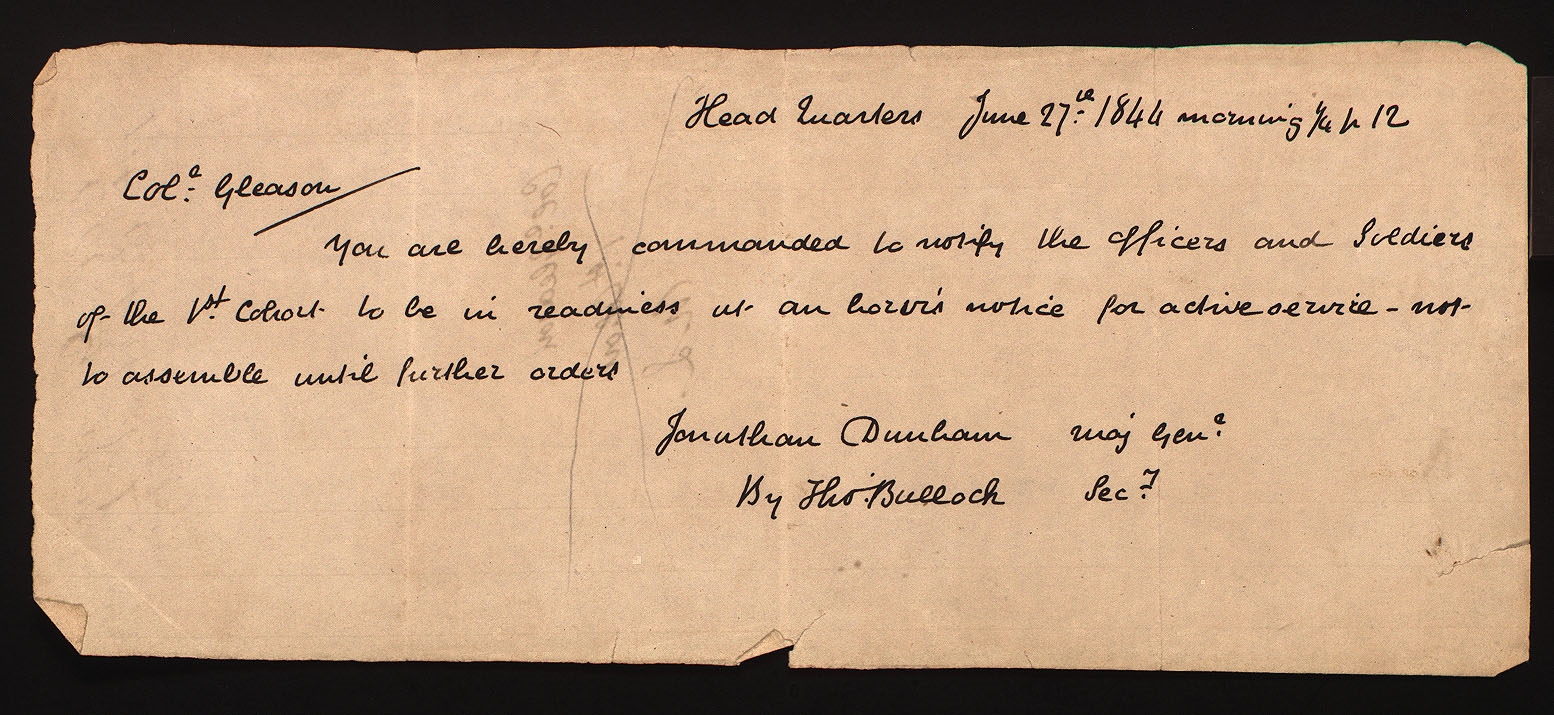 Head Quarters June 27th 1844 morning 1/4 p 12
Coll. Gleason
You are hereby commanded to notify the Officers and Soldiers
of the 1st Cohort to be in readiness at an hour's notice for active service - not
to assemble until further orders
Jonathan Dunham Maj Genl.
By Thos. Bullock Secy.